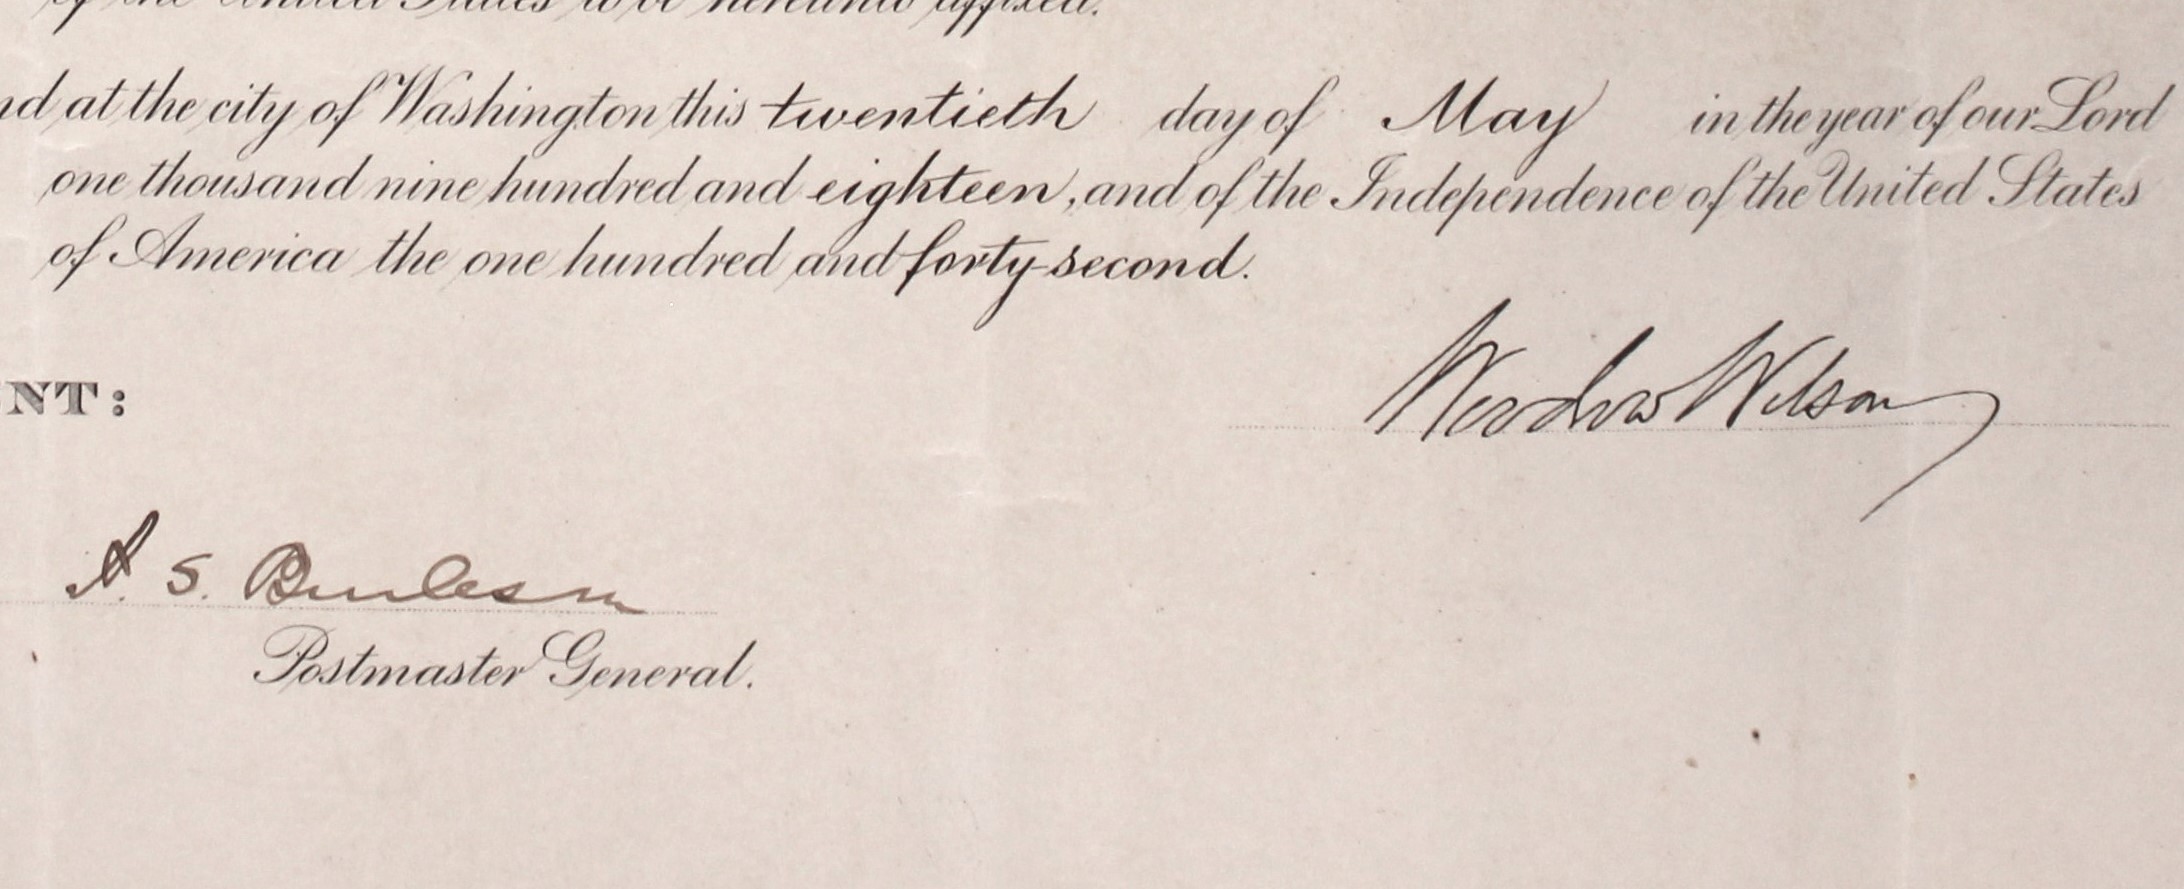 of the United States to be hereunto affixed.
nd at the city of Washington this twentieth day of May in the year of our Lord
one thousand nine hundred and eighteen, and of the Independence of the United States
of America the one hundred and forty-second.
Woodrow Wilson
NT:
A. S. Burleson
Postmaster General.